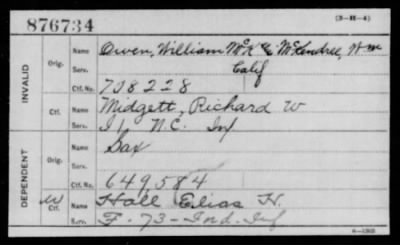 876734
(3-H-4)
INVALID
Orig.
Name Owen, William McK & McKendree, Wm
Serv. Calif
Ctf. No. 708228
Ctf.
Name Midgett, Richard W
Serv. I 1 N.C. Inf
DEPENDENT
Orig.
Name Sax
Serv.
Ctf. No. 649,584
W Ctf.
Name Hall Elias H.
Serv. F-73-Ind. Inf